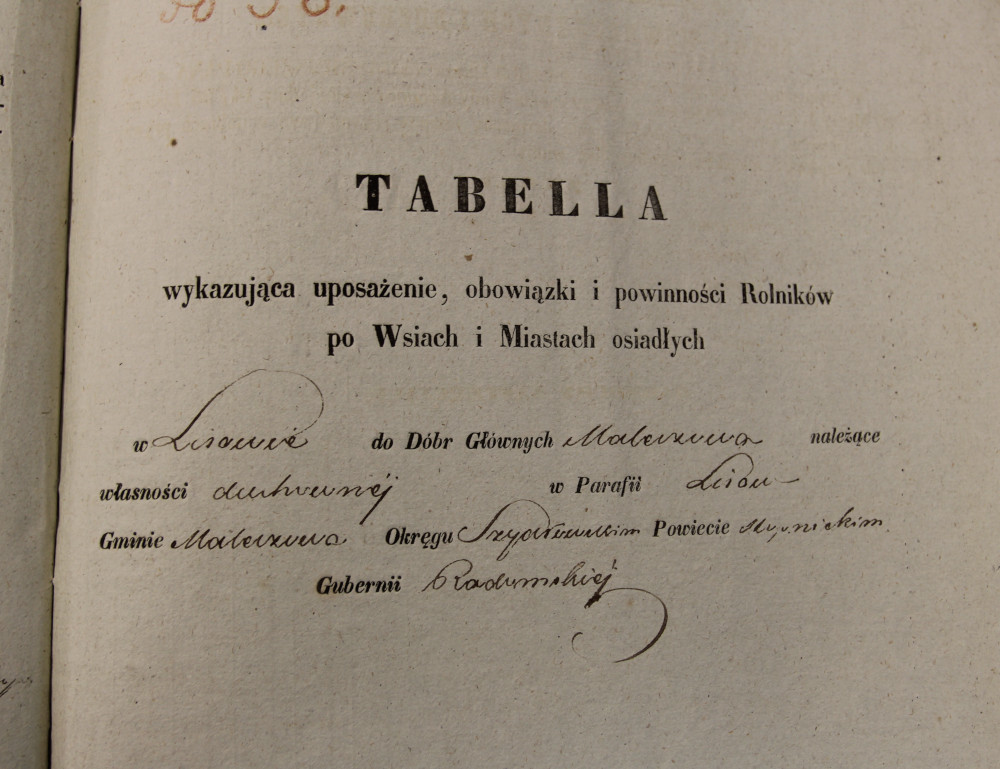 TABELLA
wykazująca uposażenie, obowiązki i powinności Rolników
po Wsiach i Miastach osiadłych
w Lisowie do Dóbr Głównych Maleszowa należące
własności duchownéj w Parafii Lisów
Gminie Maleszowa Okręgu Szydłowskim Powiecie Stopnickim
Gubernii Radomskiéj